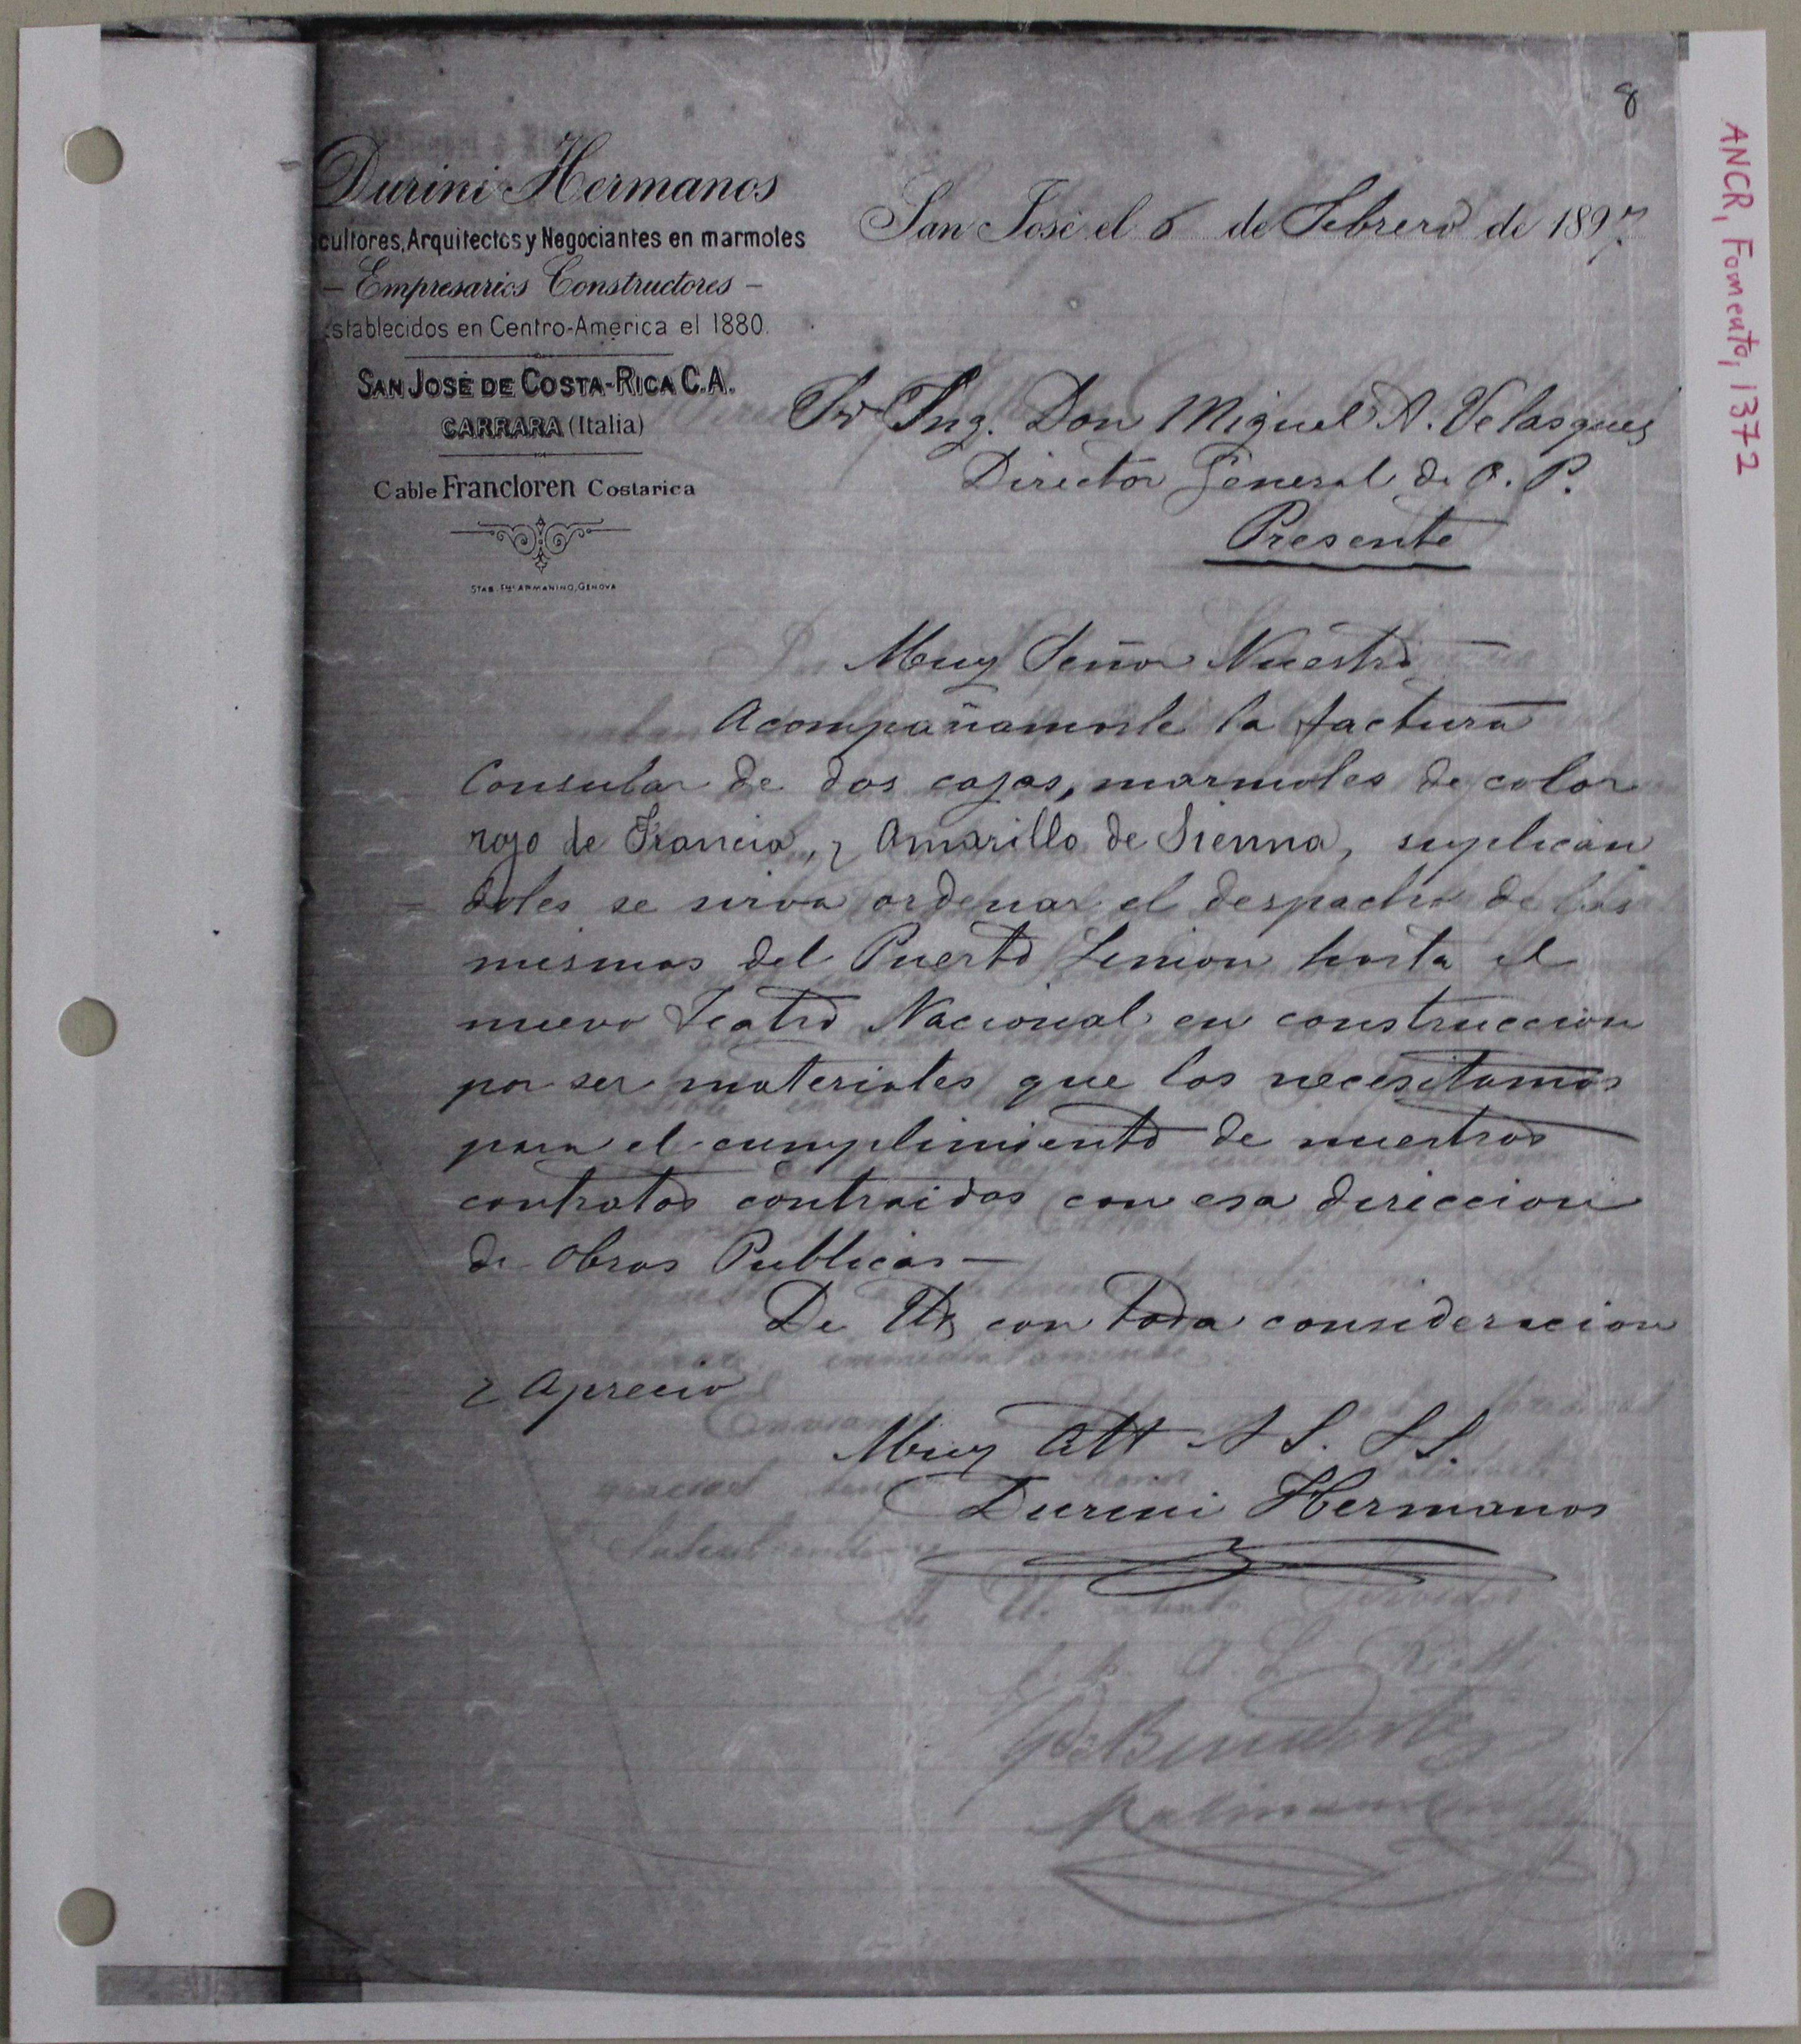 8
ANCR, Fomento, 1372
Durini Hermanos
cultores, Arquitectos y Negociantes en marmoles
— Empresarios Constructores —
stablecidos en Centro-America el 1880.
SAN JOSÉ DE COSTA-RICA C.A.
CARRARA (Italia)
Cable Francloren Costarica
STAB. ARMANINO, GENOVA
San José el 6 de Febrero de 1897
Sr Ing. Don Miguel A. Velasques
Director General de O. P.
Presente
Muy Señor Nuestro
Acompañamosle la factura
Consular de dos cajas, marmoles de color
rojo de Francia, y Amarillo de Sienna, suplican
doles se sirva ordenar el despacho de las
mismas del Puerto Limon hasta el
nuevo Teatro Nacional en construccion
por ser materiales que los necesitamos
para el cumplimiento de nuestros
contratos contraidos con esa direccion
de Obras Publicas —
De Uds con toda consideracion
y Aprecio
Muy Att S S. S S.
Durini Hermanos